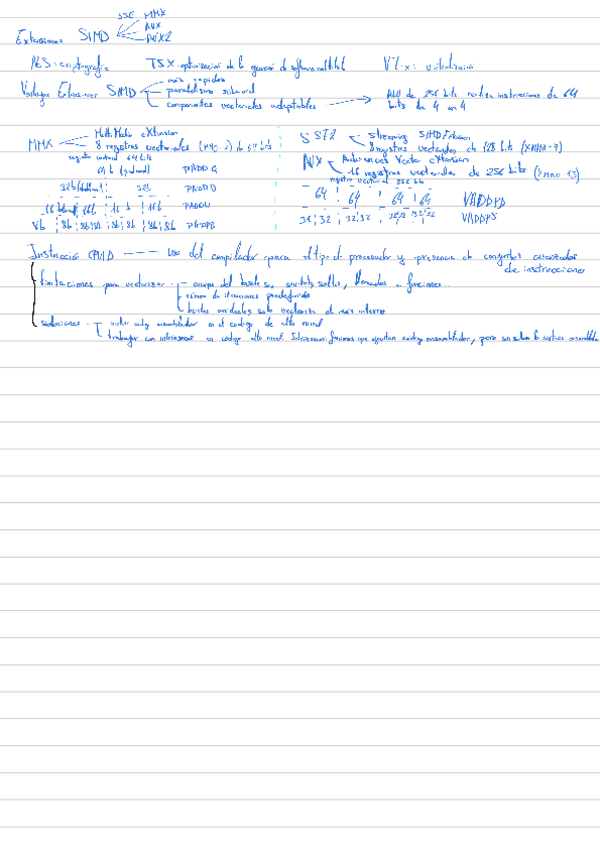 SSE MMX
Extensiones SIMD AVX
AVX2
AES: criptografía TSX: optimización de la gestión de software multihilo VT-x: virtualización
Ventajas Extensiones SIMD más rápidos
paralelismo subword
componentes vectoriales adaptables ALU de 256 bits realiza instrucciones de 64
bits de 4 en 4
MMX MultiMedia eXtension
8 registros vectoriales de 64 bits
registro vectorial 64 bits
64b (quadword) PADDQ
32b 32b PADDD
16b 16b 16b 16b PADDW
8b 8b 8b 8b 8b 8b 8b 8b PADDB
SSE2 Streaming SIMD Extension
8 registros vectoriales de 128 bits (XMM0-7)
AVX Advanced Vector eXtension
16 registros vectoriales de 256 bits
registro vectorial 256 bits
64 64 64 64 VADDPD
32 32 32 32 32 32 32 32 VADDPS
Instrucción CPUID uso del compilador para el tipo de procesador y presencia de conjuntos avanzados
de instrucciones
limitaciones para vectorizar cuerpo del bucle llamadas a funciones...
número de iteraciones predefinido
bucles anidados solo vectoriza el más interno
soluciones incluir código ensamblador en el código de alto nivel
trabajar con intrinsecas en código alto nivel. funciones que ejecutan código ensamblador, pero sin